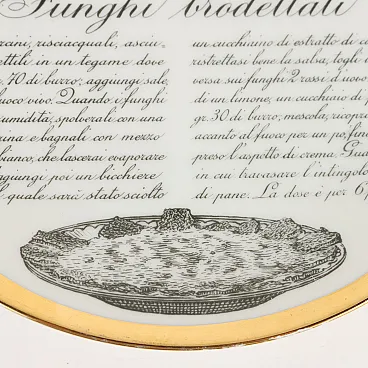 Funghi brodettati
rcini, risciacquali, asciu-
ettili in un tegame dove
. 70 di burro; aggiungi sale,
fuoco vivo. Quando i funghi
umidità, spolverali con una
rina e bagnali con mezzo
bianco, che lascerai evaporare
aggiungi poi un bicchiere
l quale sarà stato sciolto
un cucchiaino di estratto di c
ristrettasi bene la salsa, togli i
versa sui funghi 2 rossi d'uovo
di un limone, un cucchiaio di p
gr. 30 di burro; mescola, ricopr
accanto al fuoco per un po', finc
preso l'aspetto di crema. Gua
in cui travasare l'intingolo
di pane. La dose è per 6 p